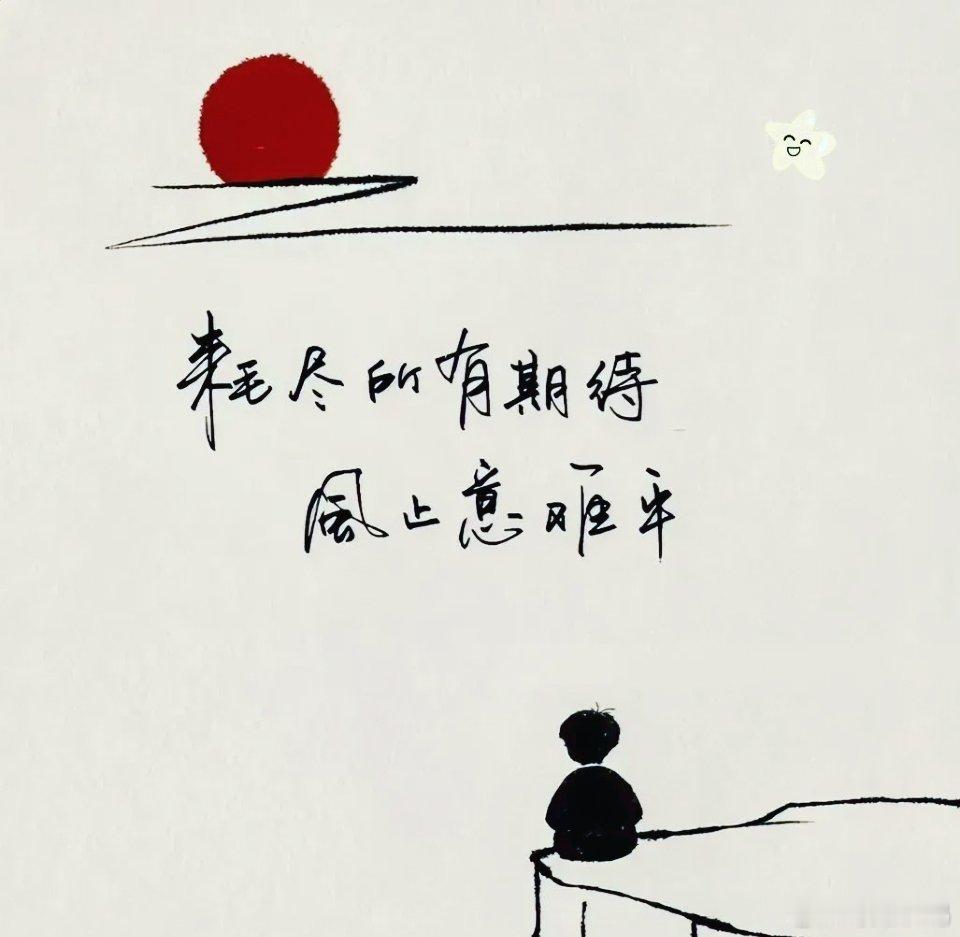 耗尽所有期待
風止意难平